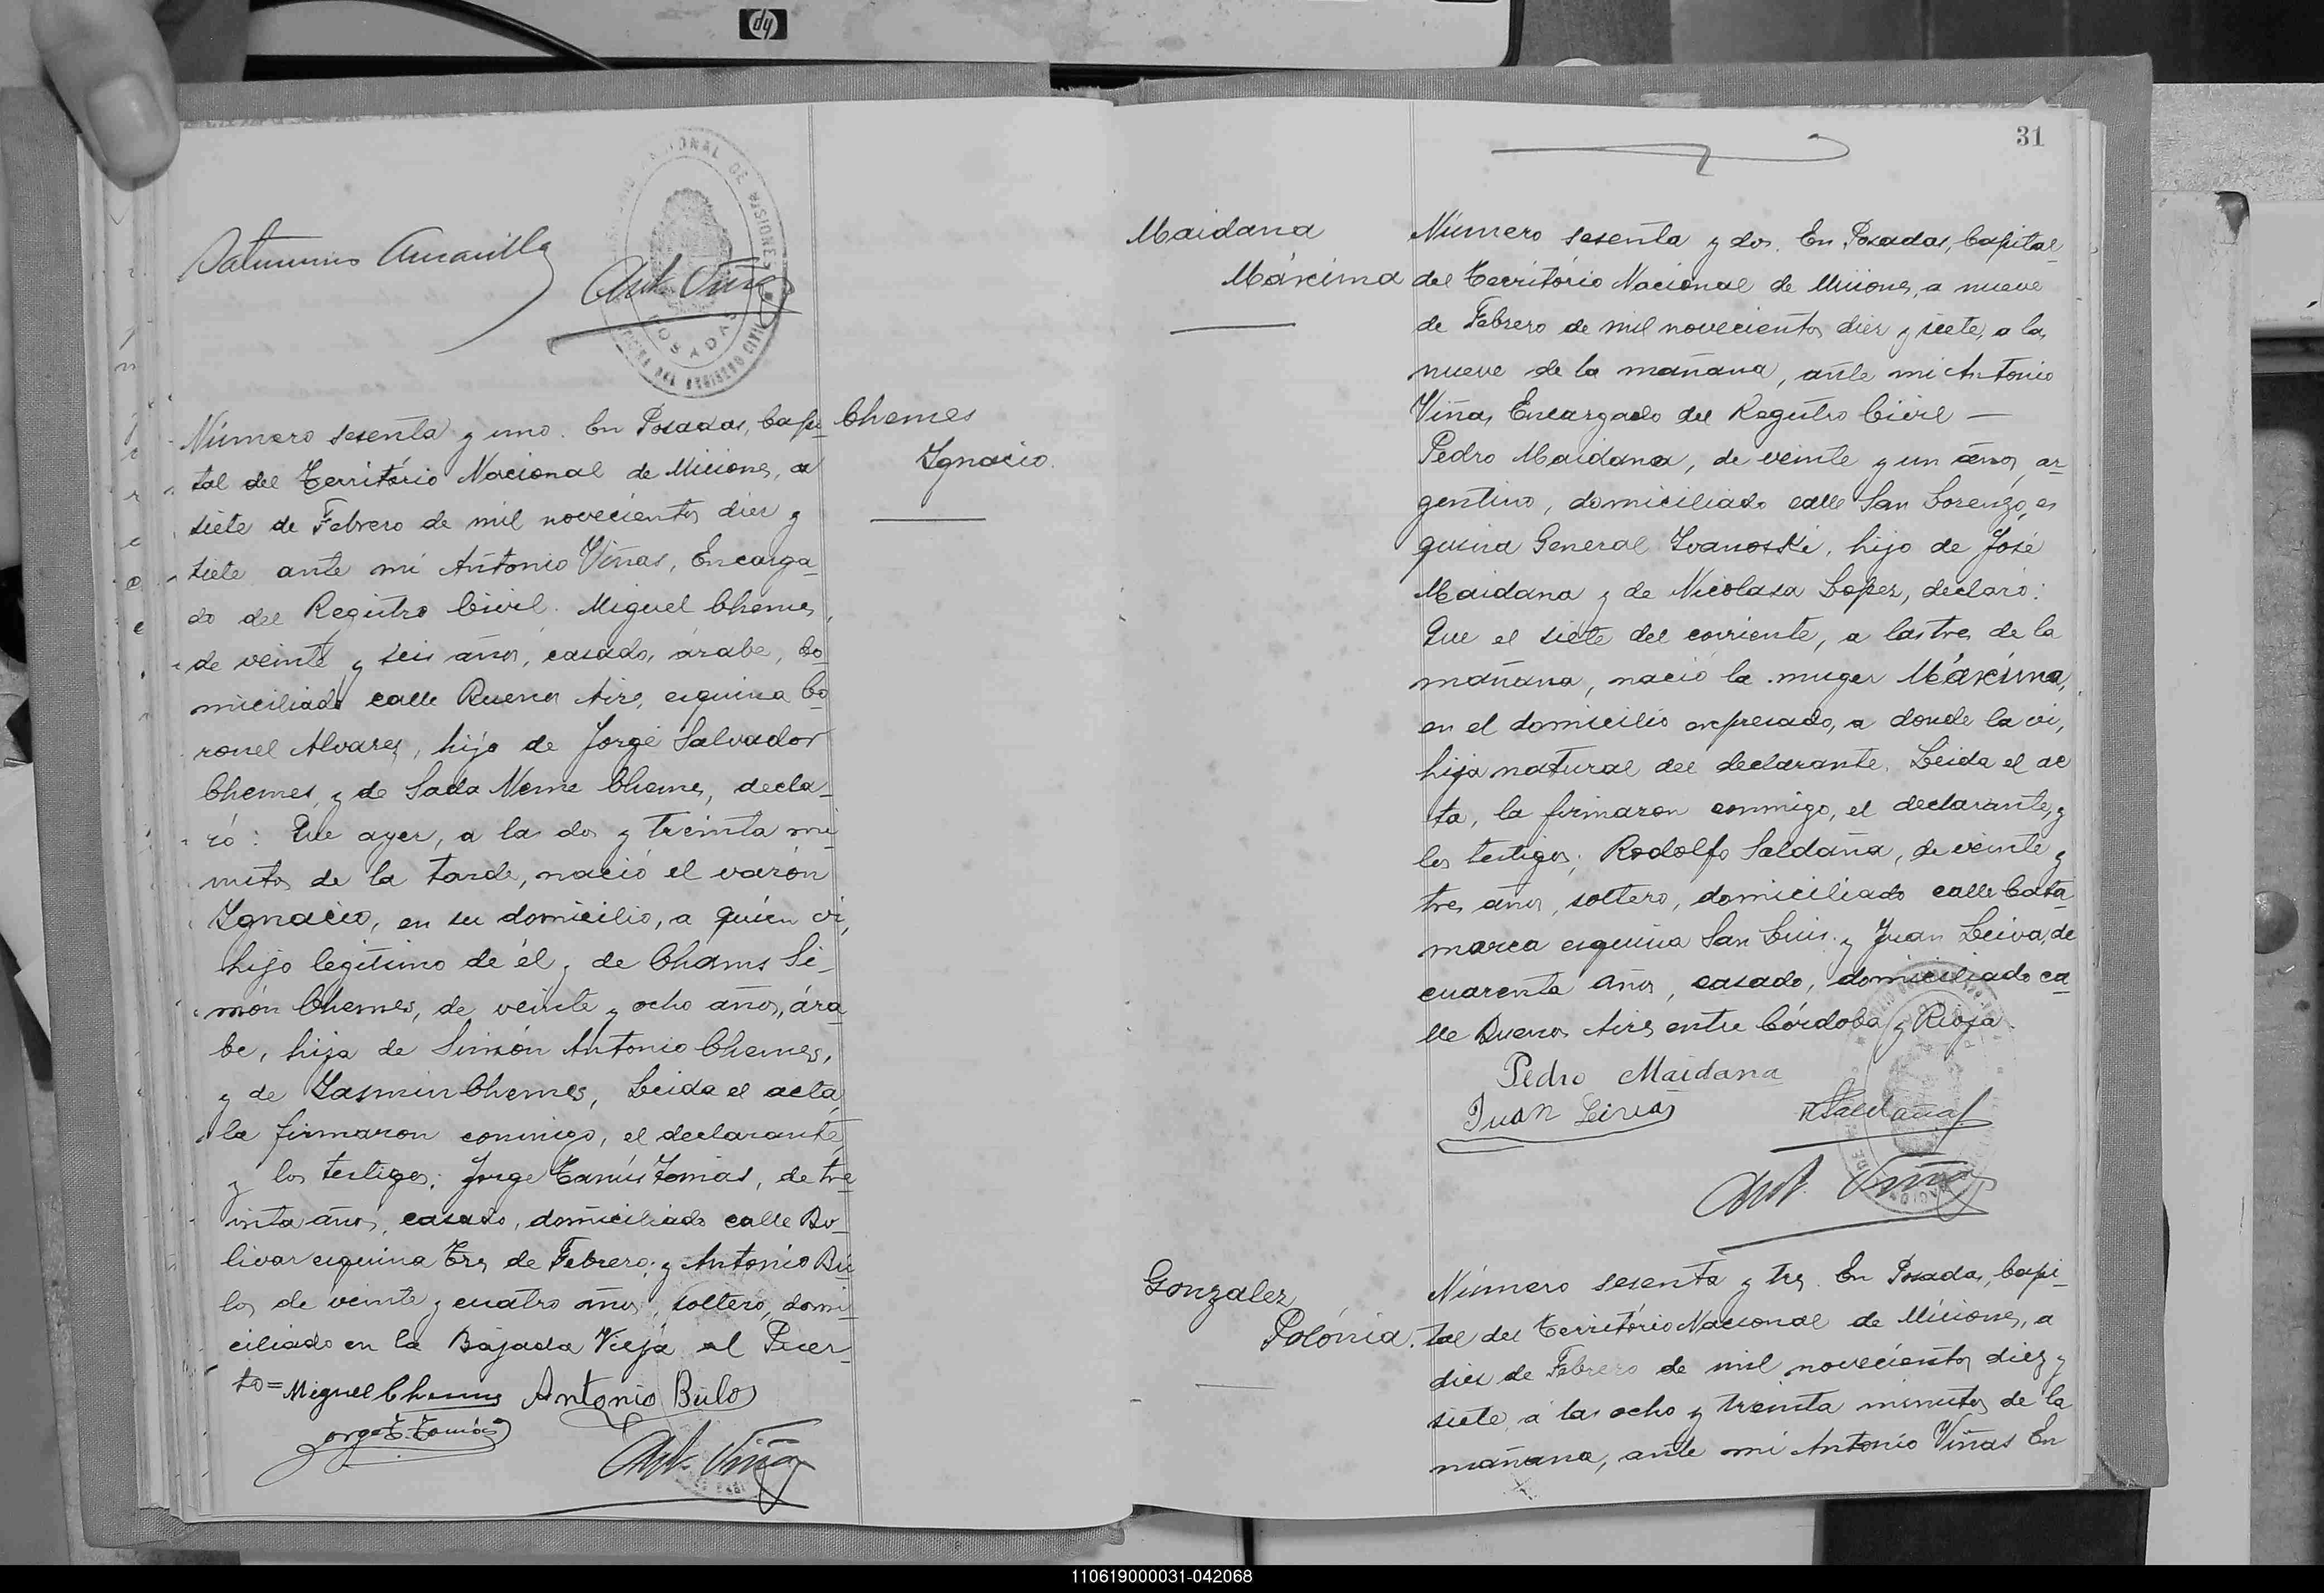 hp
Saturnino Amarilla
Ant. Viñas
POSADAS
Número sesenta y uno. En Posadas, Capi-
tal del Território Nacional de Misiones, a
siete de Febrero de mil novecientos diez y
siete ante mi Antonio Viñas, Encarga-
do del Registro Civil. Miguel Chemes,
de veinte y seis años, casado, árabe, do-
miciliado calle Buenos Aires, esquina Co-
ronel Alvarez, hijo de Jorge Salvador
Chemes, y de Sada Neme Chemes, decla-
ró: Que ayer, a las dos y treinta mi-
nutos de la tarde, nació el varón
Ignacio, en su domicilio, a quien vi,
hijo legítimo de él y de Chams Si-
món Chemes, de veinte y ocho años, ára-
be, hija de Simón Antonio Chemes,
y de Iasmin Chemes, Leida el acta,
la firmaron conmigo, el declarante,
y los testigos; Jorge Tanús Tomás, de tre-
inta años, casado, domiciliado calle Bo-
livar esquina Tres de Febrero; y Antonio Bu-
los de veinte y cuatro años, soltero, domi-
ciliado en la Bajada Vieja al Puer-
to= Miguel Chemes Antonio Bulos
Jorge T. Tomás
Ant. Viñas
Chemes
Ignacio.
31
Maidana
Máxima
Número sesenta y dos. En Posadas, Capital
del Território Nacional de Misiones, a nueve
de Febrero de mil novecientos diez y siete, a las
nueve de la mañana, ante mi Antonio
Viñas, Encargado del Registro Civil —
Pedro Maidana, de veinte y un años, ar-
gentino, domiciliado calle San Lorenzo, es
quina General Ivanoski, hijo de José
Maidana y de Nicolasa Lopez, declaró:
Que el siete del corriente, a las tres de la
mañana, nació la muger Máxima,
en el domicilio expresado, a donde la vi,
hija natural del declarante. Leida el ac
ta, la firmaron conmigo, el declarante, y
los testigos; Rodolfo Saldaña, de veinte y
tres años, soltero, domiciliado calle Cata-
marca esquina San Luis; y Juan Leiva, de
cuarenta años, casado, domiciliado ca-
lle Buenos Aires entre Córdoba y Rioja.
Pedro Maidana
Juan Leivas
R Saldaña
Ant. Viñas
Gonzalez
Polónia.
Número sesenta y tres. En Posadas, Capi-
tal del Território Nacional de Misiones, a
diez de Febrero de mil novecientos diez y
siete, a las ocho y treinta minutos de la
mañana, ante mi Antonio Viñas En
110619000031-042068